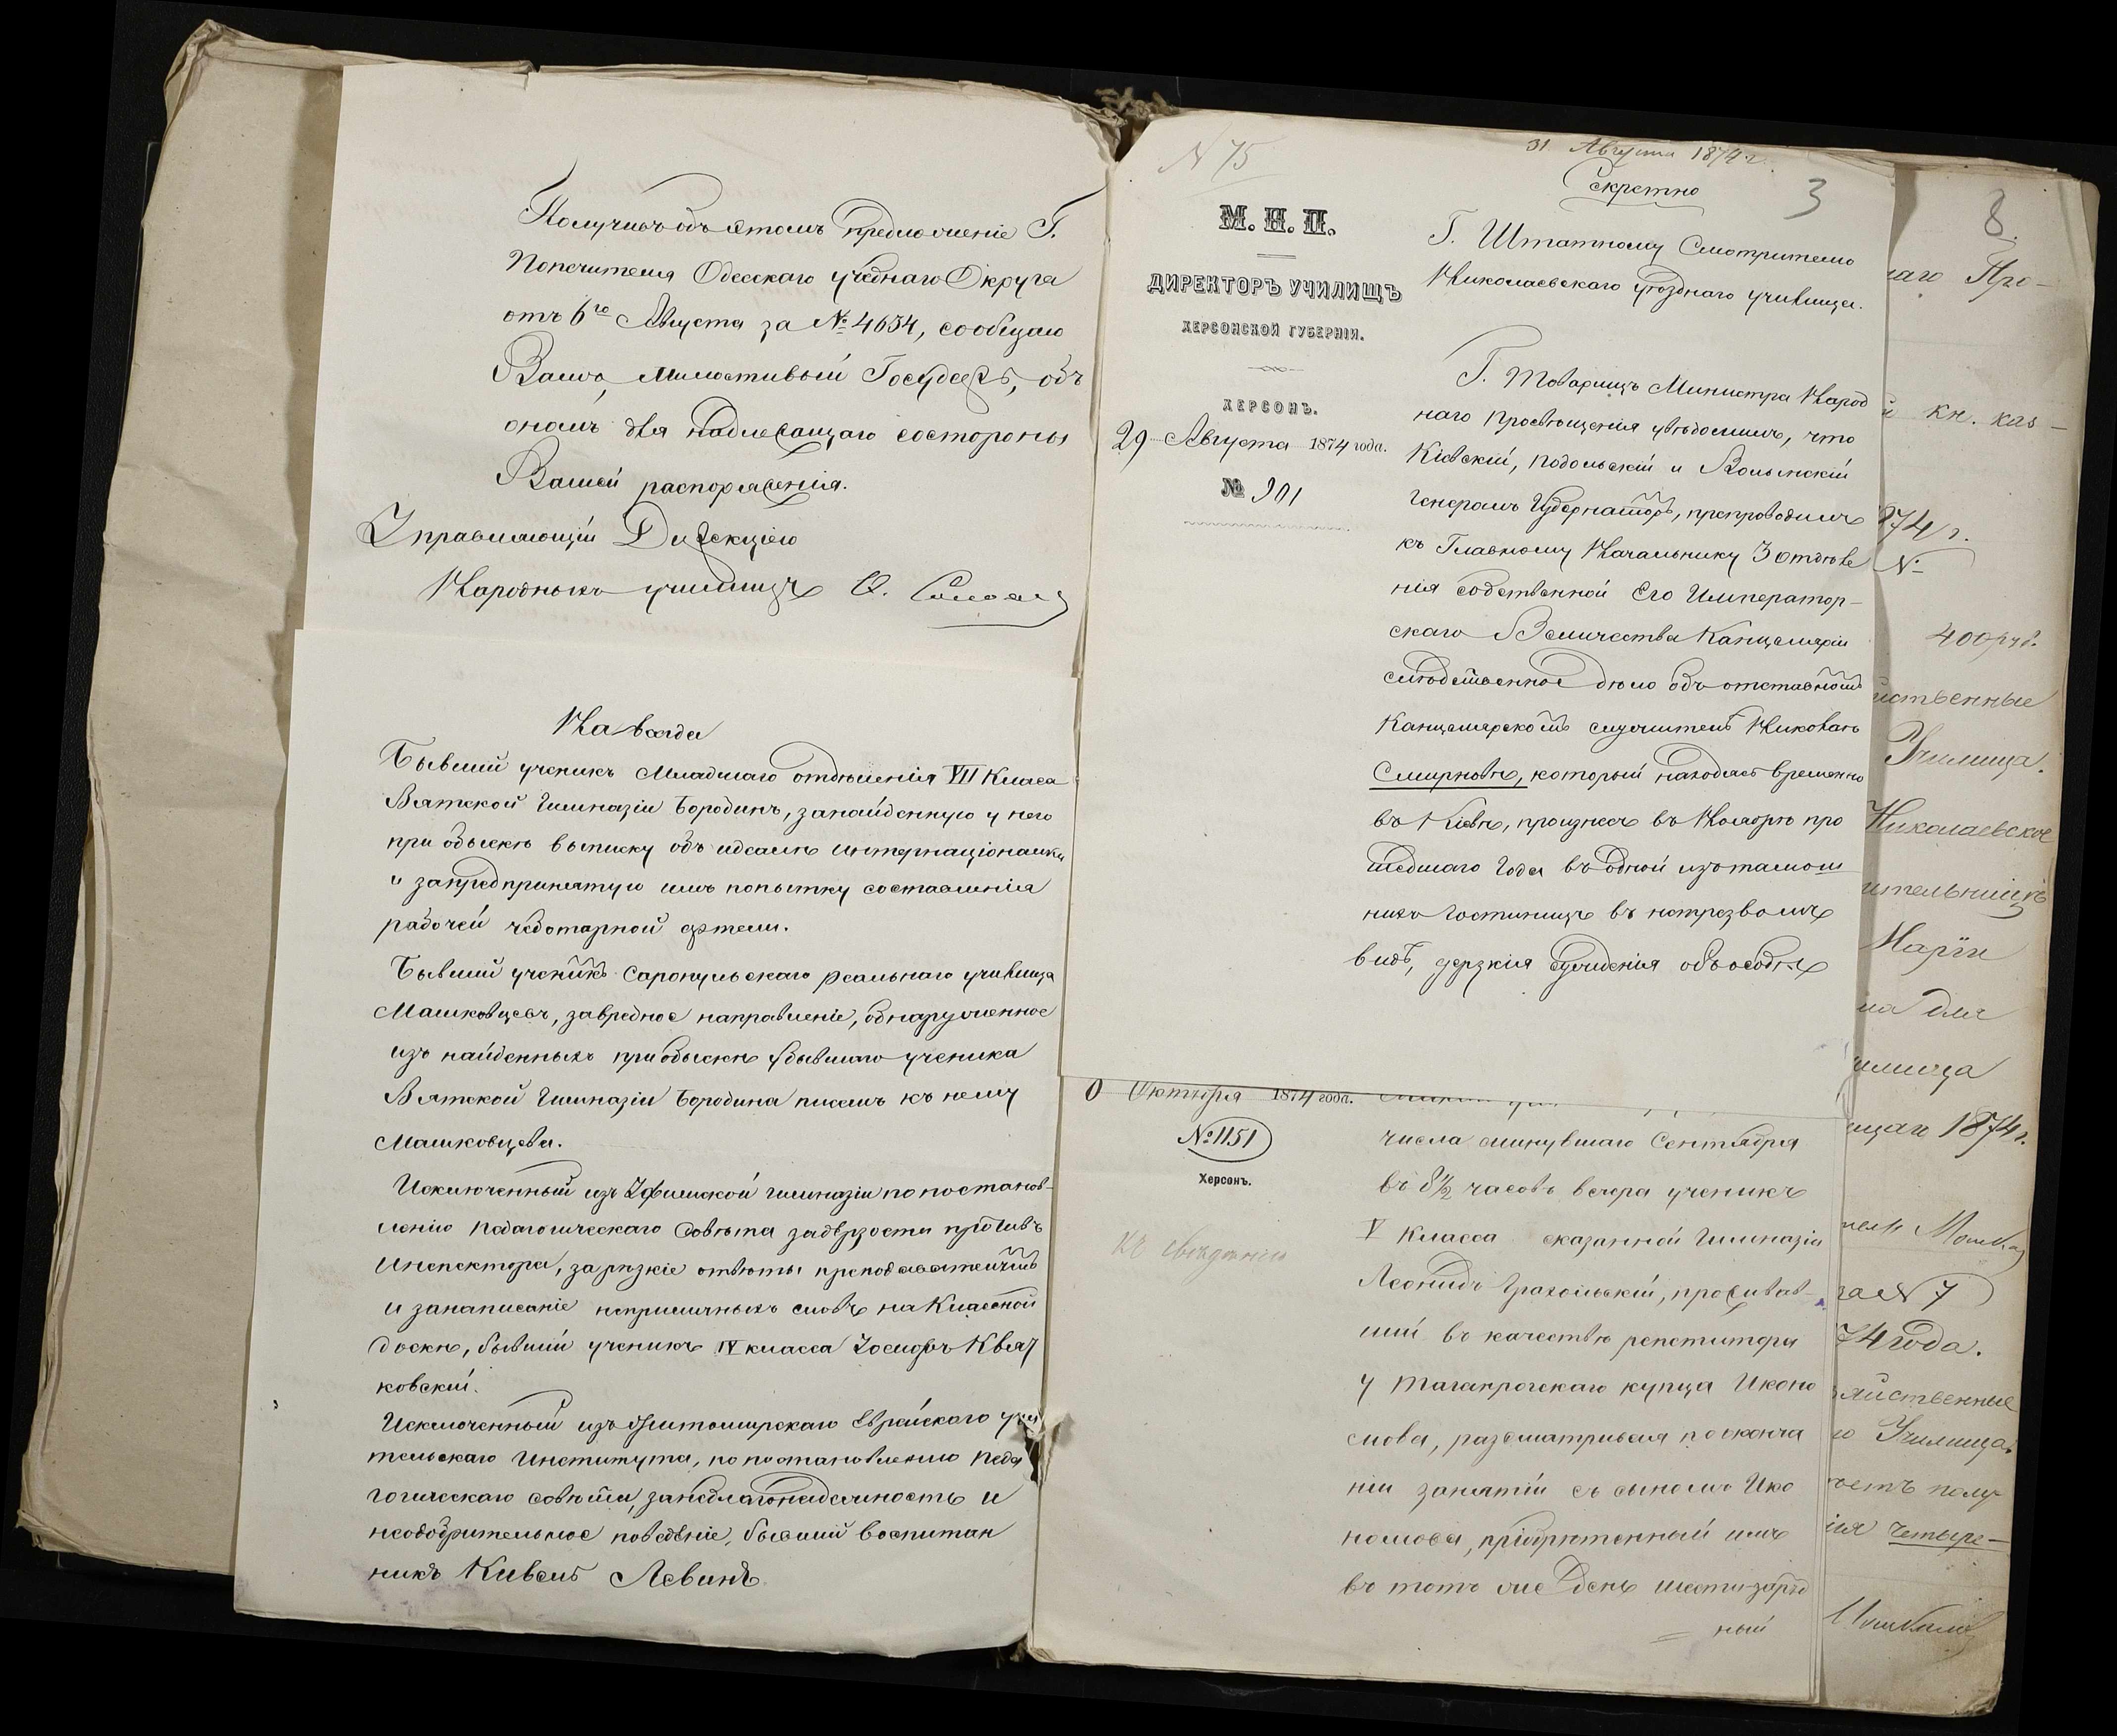 Получивъ объ этомъ предложеніе Г.
Попечителя Одесскаго учебнаго Округа
отъ 6го Августа за № 4634, сообщаю
Вамъ, Милостивый Государь, объ
ономъ для надлежащаго состороны
Вашей распоряженія.
Управляющій Дирекціею
Народныхъ училищъ
На всегда
Бывшій ученикъ Младшаго отдѣленія VII Класса
Вятской Гимназіи Бородинъ, занайденную у него
при обыскѣ выписку объ идеалѣ интернаціоналки
и запредпринятую имъ попытку составленія
рабочей чеботарной артели.
Бывшій ученикъ Сарапульскаго реальнаго училища
Машковцевъ, завредное направленіе, обнаруженное
изъ найденныхъ приобыскѣ убывшаго ученика
Вятской Гимназіи Бородина писемъ къ нему
Машковцева.
Исключенный изъ Уфимской гимназіи по постанов-
ленію педагогическаго Совѣта задерзости противъ
Инспектора, зарѣзкіе отвѣты преподавателямъ
и занаписаніе неприличныхъ словъ на Классной
доскѣ, бывшій ученикъ IV класса Іосифъ Квят
ковскій.
Исключенный изъ Житомирскаго Еврейскаго учи
тельскаго Института, по постановленію педа
гогическаго совѣта, занеблагонадежность и
неодобрительное поведѣніе, бывшій воспитан
никъ Кивель Левинъ
N 75
31 Августа 1874 г.
Секретно
3
М. Н. П.
ДИРЕКТОРЪ УЧИЛИЩЪ
ХЕРСОНСКОЙ ГУБЕРНІИ.
ХЕРСОНЪ.
29 Августа 1874 года.
№ 901
Г. Штатному Смотрителю
Николаевскаго уѣзднаго училища.
Г. Товарищъ Министра Народ
наго Просвѣщенія увѣдомилъ, что
Кіевскій, Подольскій и Волынскій
Генералъ Губернаторъ, препроводилъ
къ Главному Начальнику 3 отдѣле
нія собственной Его Император-
скаго Величества Канцеляріи
слѣдственное дѣло объ отставномъ
Канцелярскомъ служителѣ Николаѣ
Смирновѣ, который находясь временно
въ Кіевѣ, произнесъ въ Ноябрѣ про
шедшаго Года въ одной изъ тамош
нихъ Гостиницъ въ нетрезвомъ
видѣ, дерзкія сужденія объ особѣ
0 Октября 1874 года.
№ 1151
Херсонъ.
Къ свѣдѣнію
числа минувшаго Сентября
въ 8½ часовъ вечера ученикъ
V Класса сказанной Гимназіи
Леонидъ Грахольскій, проживав-
шій въ качествѣ репетитора
у Таганрогскаго купца Иконо
мова, разсматривая по оконча
ніи занятій съ сыномъ Ико
номова, пріобрѣтенный имъ
въ тотъ же день шести-заряд
ный
8.
наго Про-
кн. каз-
874 г.
№
400 руб.
йственные
Училища.
Николаевское
ительницѣ
Маріи
на для
илища
ищаго 1874 г.
за № 7
74 года.
яйственные
го Училища
четъ полу-
ія четыре-